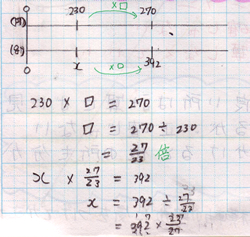 ×□
230 270
(円)
0
(g)
0 x 392
×□
230 × □ = 270
□ = 270 ÷ 230
= 27/23 倍
x × 27/23 = 392
x = 392 ÷ 27/23
= 392 × 23/27